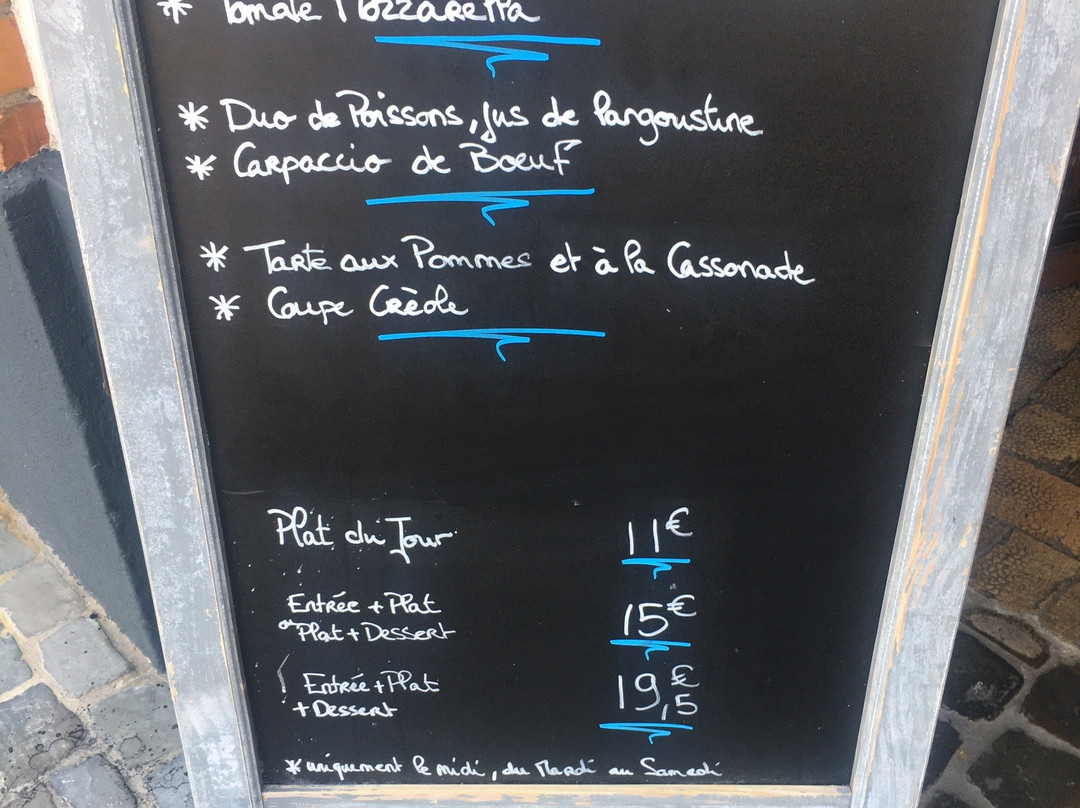 * Tomate Mozzarella
* Duo de Poissons, jus de langoustine
* Carpaccio de Boeuf
* Tarte aux Pommes et à la Cassonade
* Coupe Créole
Plat du Jour 11€
Entrée + Plat
ou Plat + Dessert 15€
Entrée + Plat
+ Dessert 19,5€
* uniquement le midi, du Mardi au Samedi